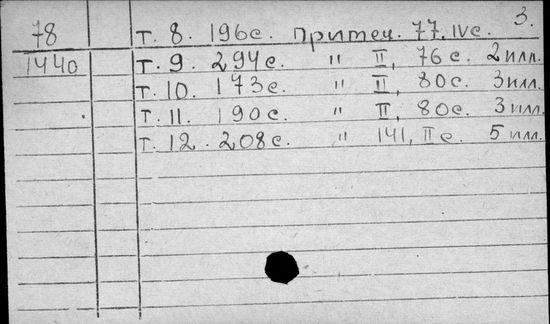 3.
78 т. 8. 196с. Притеч. 77. IVс.
1440 т. 9. 294с. " II, 76с. 2 илл.
т. 10. 173с. " II, 80с. 3 илл.
т. 11. 190с. " II, 80с. 3 илл.
т. 12. 208с. " 141, IIс. 5 илл.